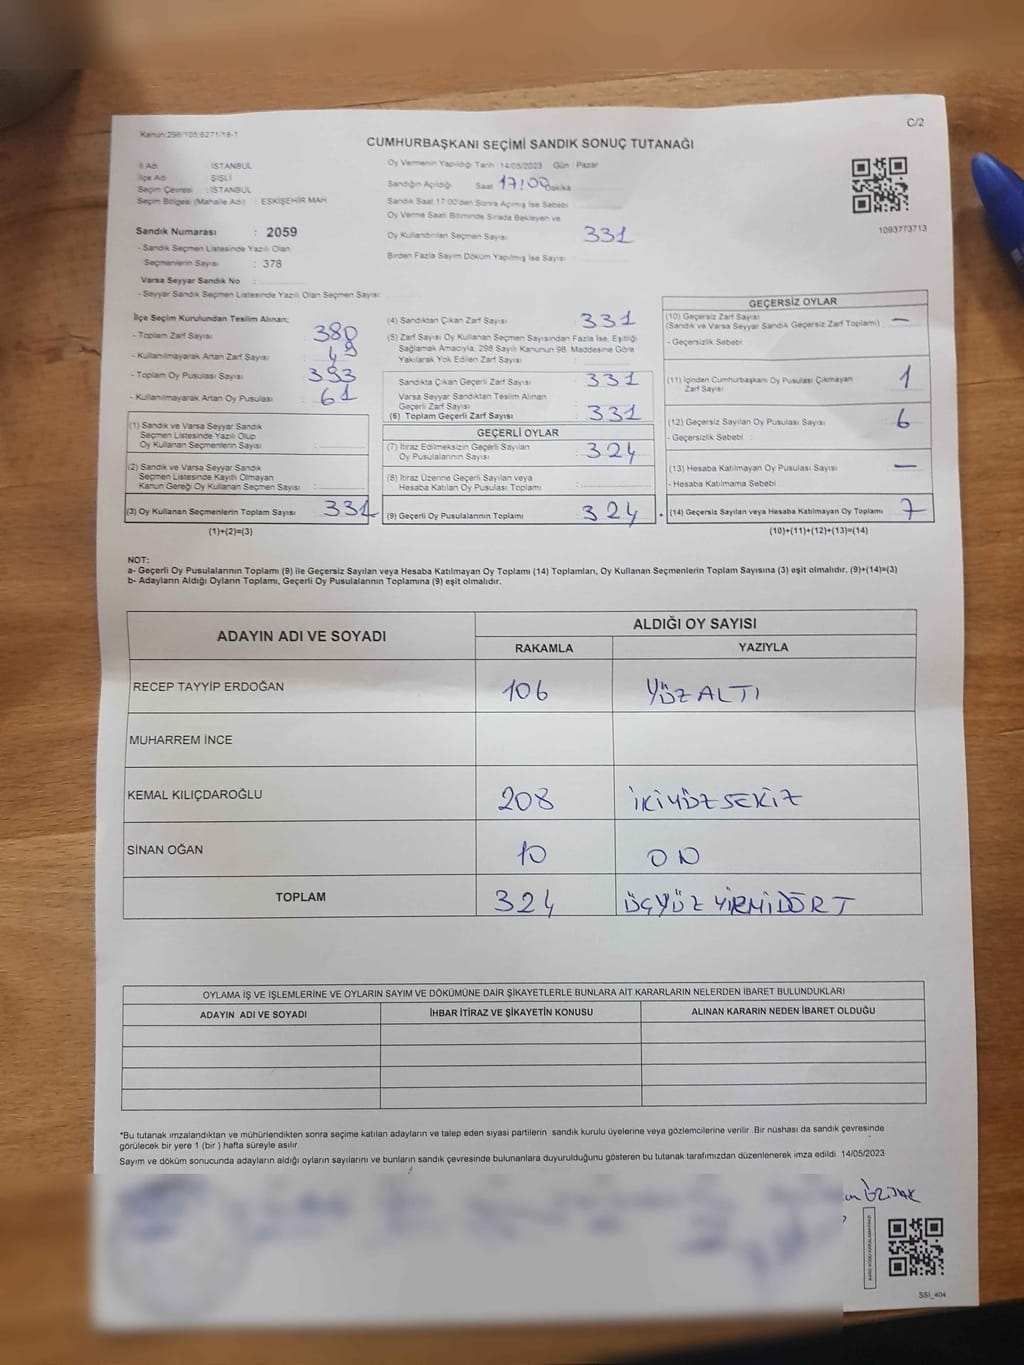 Kanun:298/105:6271/18-1
C/2
CUMHURBAŞKANI SEÇİMİ SANDIK SONUÇ TUTANAĞI
İl Adı : İSTANBUL
İlçe Adı : ŞİŞLİ
Seçim Çevresi : İSTANBUL
Seçim Bölgesi (Mahalle Adı) : ESKİŞEHİR MAH.
Sandık Numarası : 2059
- Sandık Seçmen Listesinde Yazılı Olan
Seçmenlerin Sayısı : 378
Varsa Seyyar Sandık No :
- Seyyar Sandık Seçmen Listesinde Yazılı Olan Seçmen Sayısı:
Oy Vermenin Yapıldığı Tarih : 14/05/2023 Gün : Pazar
Sandığın Açıldığı Saat 17:00 Dakika
Sandık Saat 17:00'den Sonra Açılmış İse Sebebi
Oy Verme Saati Bitiminde Sırada Bekleyen ve
Oy Kullandırılan Seçmen Sayısı : 331
Birden Fazla Sayım Döküm Yapılmış İse Sayısı :
1093773713
İlçe Seçim Kurulundan Teslim Alınan;
- Toplam Zarf Sayısı : 380
- Kullanılmayarak Artan Zarf Sayısı : 49
- Toplam Oy Pusulası Sayısı : 393
- Kullanılmayarak Artan Oy Pusulası : 61
(1) Sandık ve Varsa Seyyar Sandık
Seçmen Listesinde Yazılı Olup
Oy Kullanan Seçmenlerin Sayısı :
(2) Sandık ve Varsa Seyyar Sandık
Seçmen Listesinde Kayıtlı Olmayan
Kanun Gereği Oy Kullanan Seçmen Sayısı :
(3) Oy Kullanan Seçmenlerin Toplam Sayısı : 331
(1)+(2)=(3)
(4) Sandıktan Çıkan Zarf Sayısı : 331
(5) Zarf Sayısı Oy Kullanan Seçmen Sayısından Fazla İse, Eşitliği
Sağlamak Amacıyla, 298 Sayılı Kanunun 98. Maddesine Göre
Yakılarak Yok Edilen Zarf Sayısı :
Sandıkta Çıkan Geçerli Zarf Sayısı : 331
Varsa Seyyar Sandıktan Teslim Alınan
Geçerli Zarf Sayısı :
(6) Toplam Geçerli Zarf Sayısı : 331
GEÇERLİ OYLAR
(7) İtiraz Edilmeksizin Geçerli Sayılan
Oy Pusulalarının Sayısı : 324
(8) İtiraz Üzerine Geçerli Sayılan veya
Hesaba Katılan Oy Pusulası Toplamı :
(9) Geçerli Oy Pusulalarının Toplamı : 324
GEÇERSİZ OYLAR
(10) Geçersiz Zarf Sayısı
(Sandık ve Varsa Seyyar Sandık Geçersiz Zarf Toplamı) : —
- Geçersizlik Sebebi :
(11) İçinden Cumhurbaşkanı Oy Pusulası Çıkmayan
Zarf Sayısı : 1
(12) Geçersiz Sayılan Oy Pusulası Sayısı : 6
- Geçersizlik Sebebi :
(13) Hesaba Katılmayan Oy Pusulası Sayısı : —
- Hesaba Katılmama Sebebi :
(14) Geçersiz Sayılan veya Hesaba Katılmayan Oy Toplamı : 7
(10)+(11)+(12)+(13)=(14)
NOT:
a- Geçerli Oy Pusulalarının Toplamı (9) ile Geçersiz Sayılan veya Hesaba Katılmayan Oy Toplamı (14) Toplamları, Oy Kullanan Seçmenlerin Toplam Sayısına (3) eşit olmalıdır. (9)+(14)=(3)
b- Adayların Aldığı Oyların Toplamı, Geçerli Oy Pusulalarının Toplamına (9) eşit olmalıdır.
ADAYIN ADI VE SOYADI
ALDIĞI OY SAYISI
RAKAMLA YAZIYLA
RECEP TAYYİP ERDOĞAN 106 YÜZ ALTI
MUHARREM İNCE
KEMAL KILIÇDAROĞLU 208 İKİYÜZ SEKİZ
SİNAN OĞAN 10 ON
TOPLAM 324 ÜÇYÜZ YİRMİDÖRT
OYLAMA İŞ VE İŞLEMLERİNE VE OYLARIN SAYIM VE DÖKÜMÜNE DAİR ŞİKAYETLERLE BUNLARA AİT KARARLARIN NELERDEN İBARET BULUNDUKLARI
ADAYIN ADI VE SOYADI İHBAR İTİRAZ VE ŞİKAYETİN KONUSU ALINAN KARARIN NEDEN İBARET OLDUĞU
*Bu tutanak imzalandıktan ve mühürlendikten sonra seçime katılan adayların ve talep eden siyasi partilerin sandık kurulu üyelerine veya gözlemcilerine verilir. Bir nüshası da sandık çevresinde
görülecek bir yere 1 (bir) hafta süreyle asılır.
Sayım ve döküm sonucunda adayların aldığı oyların sayılarını ve bunların sandık çevresinde bulunanlara duyurulduğunu gösteren bu tutanak tarafımızdan düzenlenerek imza edildi. 14/05/2023
SSI_404